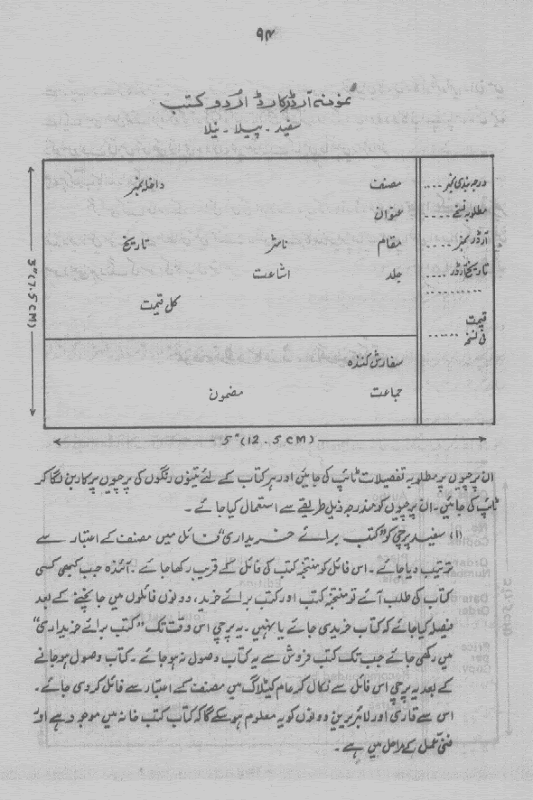 ۹۴
نمونہ آرڈر کارڈ اردو کتب
سفید - پیلا - نیلا
درجہ بندی نمبر .... مصنف داخلہ نمبر
مطلوبہ نسخے .... عنوان
آرڈر نمبر ..... مقام ناشر تاریخ
تاریخ آرڈر .... جلد اشاعت
..........
کل قیمت
قیمت
فی نسخہ ......
سفارش کنندہ
جماعت مضمون
3"(7.5CM)
5"(12.5CM)
ان پرچیوں پر مطلوبہ تفصیلات ٹائپ کی جائیں اور ہر کتاب کے لئے تینوں رنگوں کی پرچیوں پر کاربن لگا کر
ٹائپ کی جائیں۔ ان پرچیوں کو مندرجہ ذیل طریقے سے استعمال کیا جائے۔
(۱) سفید پرچی کو "کتب برائے خریداری" فائل میں مصنف کے اعتبار سے
ترتیب دیا جائے۔ اس فائل کو منتخبہ کتب کی فائل کے قریب رکھا جائے۔ آئندہ جب کبھی کسی
کتاب کی طلب آئے تو منتخبہ کتب اور کتب برائے خرید، دونوں فائلوں میں جانچنے کے بعد
فیصلہ کیا جائے کہ کتاب خریدی جائے یا نہیں۔ یہ پرچی اس وقت تک "کتب برائے خریداری"
میں رکھی جائے جب تک کتب فروش سے یہ کتاب وصول نہ ہو جائے۔ کتاب وصول ہو جانے
کے بعد یہ پرچی اس فائل سے نکال کر عام کیٹلاگ میں مصنف کے اعتبار سے فائل کر دی جائے۔
اس سے قاری اور لائبریرین دونوں کو یہ معلوم ہو سکے گا کہ کتاب کتب خانہ میں موجود ہے اور
فنی عمل کے مراحل میں ہے۔